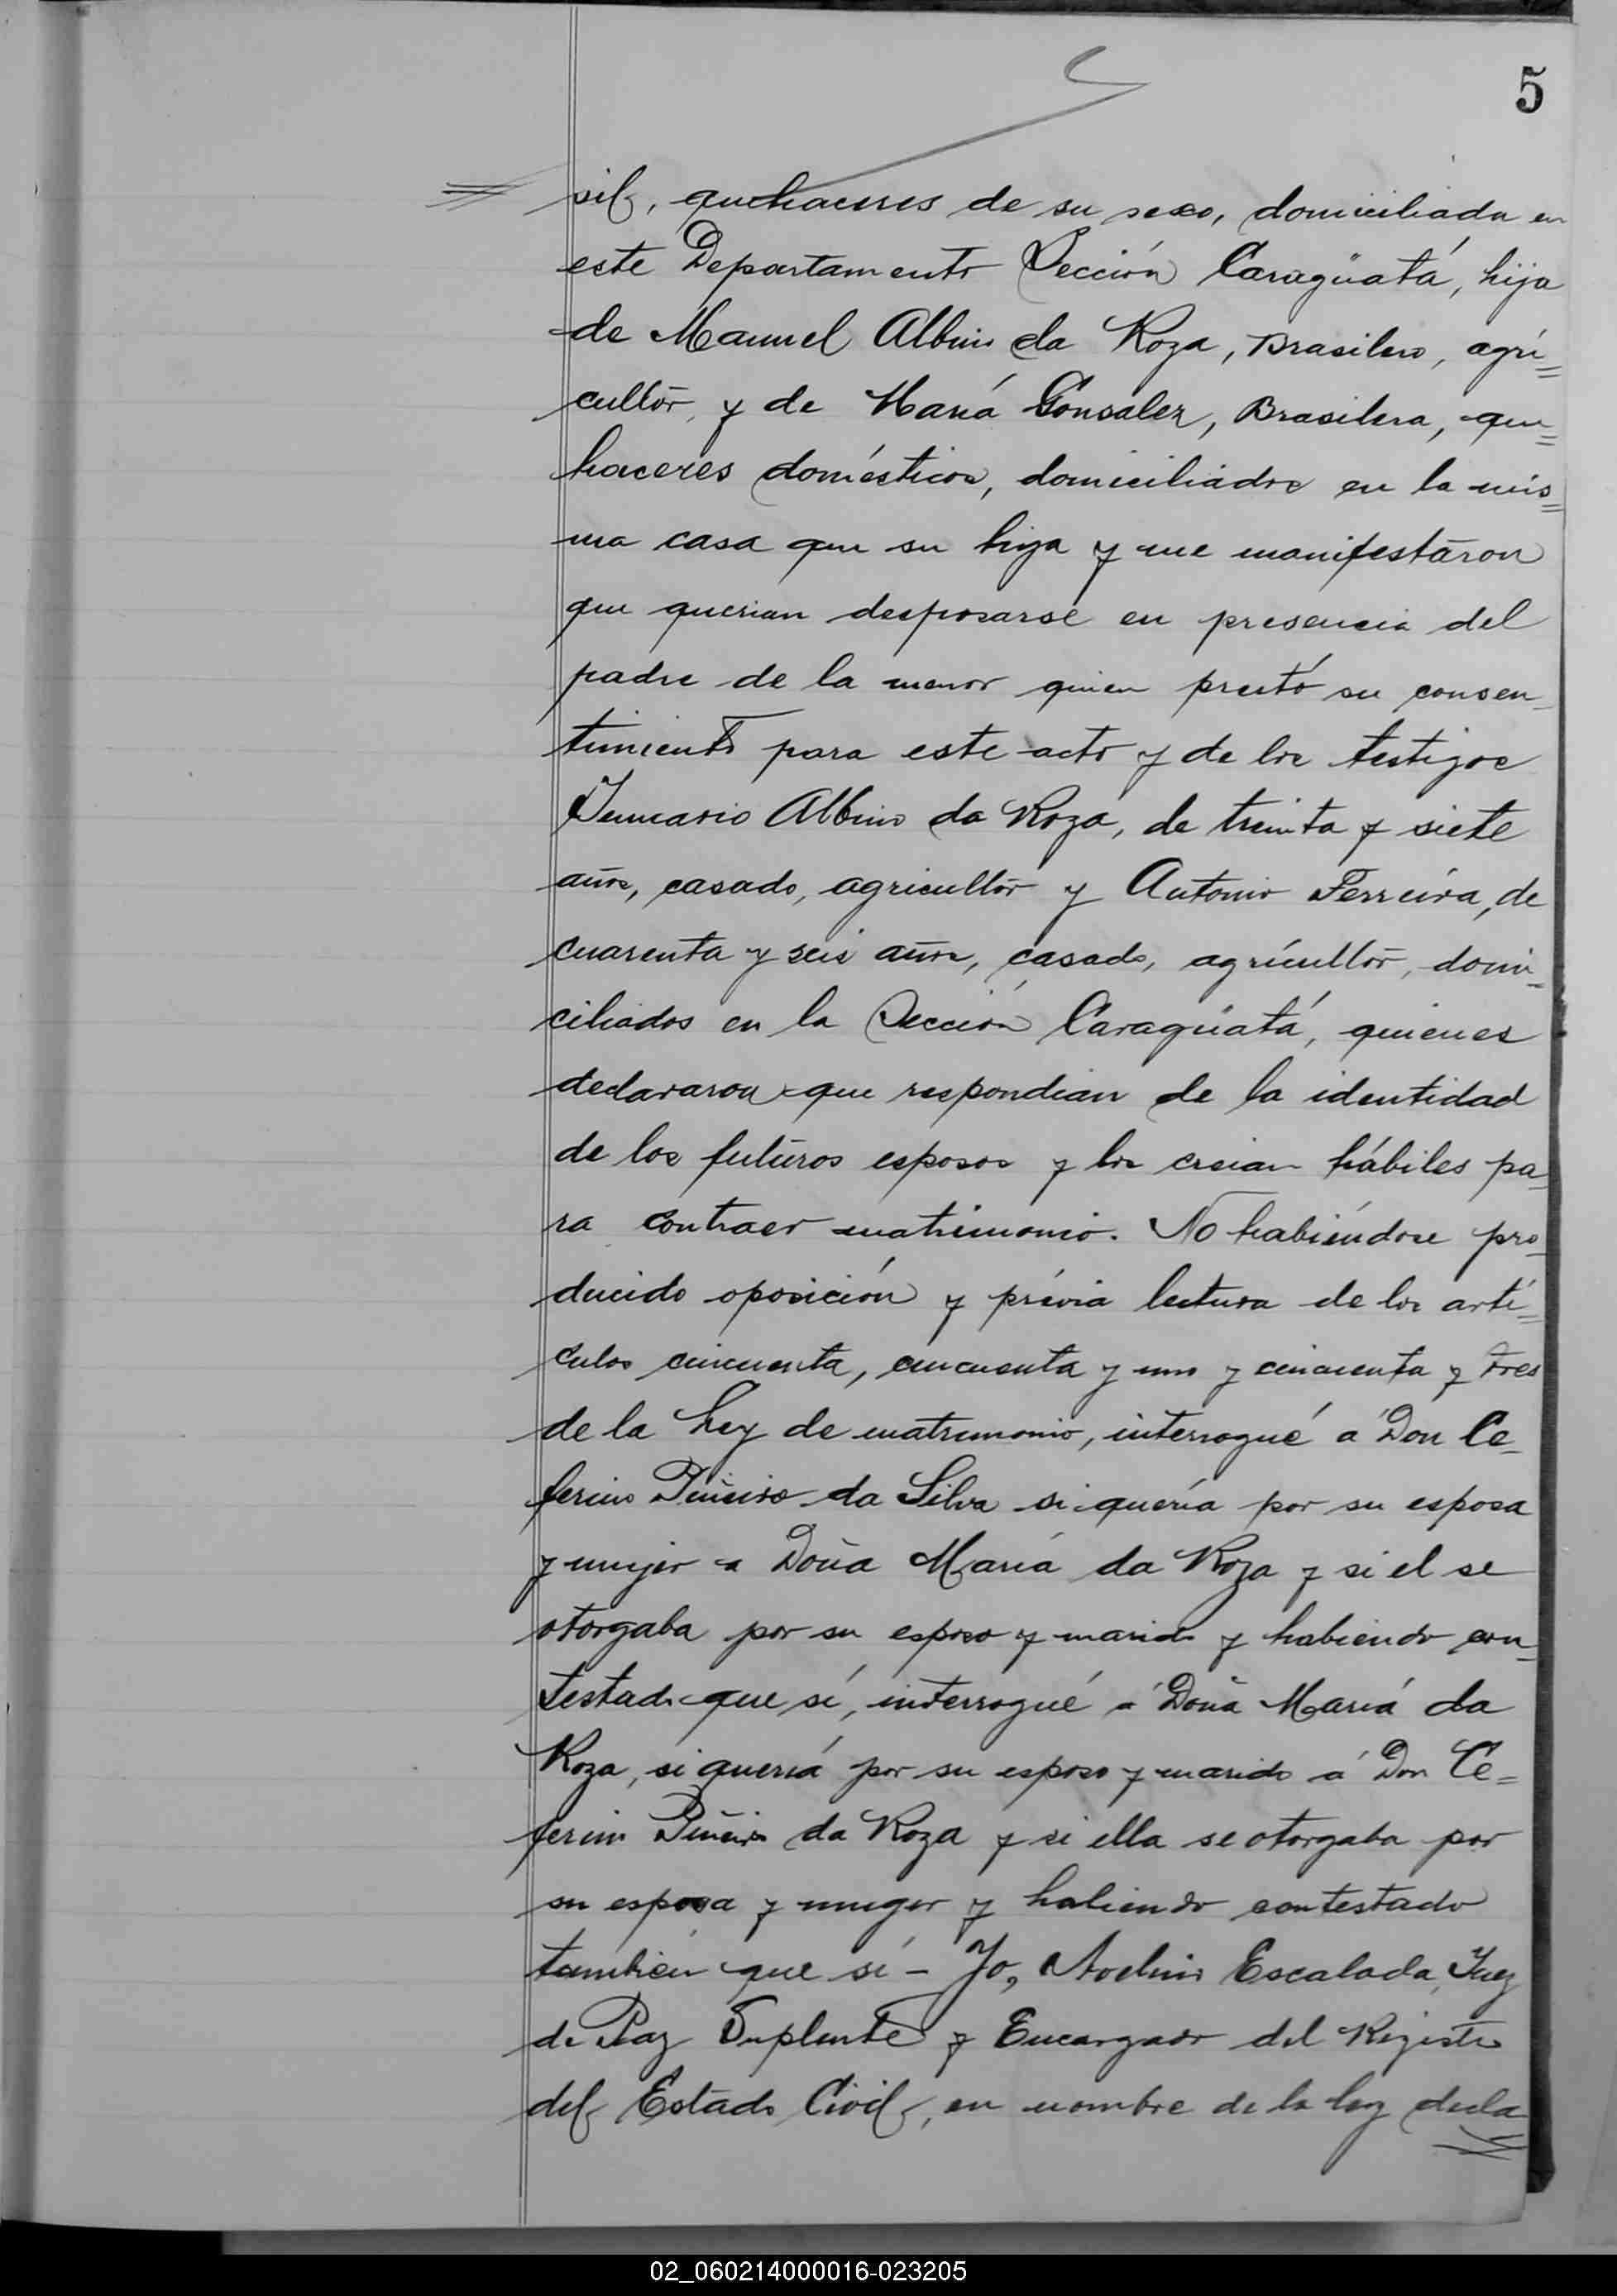 5
sil, quehaceres de su sexo, domiciliada en
este Departamento Sección Caragüatá, hija
de Manuel Albino da Roza, Brasilero, agri=
cultor, y de María Gonsalez, Brasilera, que=
haceres domésticos, domiciliados en la mis=
ma casa que su hija y me manifestaron
que querian desposarse en presencia del
padre de la menor quien prestó su consen-
timiento para este acto y de los testigos
Albino da Roza, de treinta y siete
años, casado, agricultor y Antonio Ferreira, de
cuarenta y seis años, casado, agricultor, domi-
ciliados en la Sección Caragüatá, quienes
declararon que respondian de la identidad
de los futuros esposos y los creian hábiles pa-
ra contraer matrimonio. No habiéndose pro-
ducido oposición y prévia lectura de los artí=
culos cincuenta, cincuenta y uno y cincuenta y tres
de la Ley de matrimonio, interrogué á Don Ce-
ferino Piñeiro da Silva si quería por su esposa
y mujer a Doña María da Roza y si el se
otorgaba por su esposo y marido y habiendo con-
testado que sí, interrogué a Doña María da
Roza, si quería por su esposo y marido á Don Ce=
ferino Piñeiro da Roza y si ella se otorgaba por
su esposa y muger y habiendo contestado
también que sí - Yo, Avelino Escalada, Juez
de Paz Suplente y Encargado del Registro
del Estado Civil, en nombre de la ley decla
02_060214000016-023205